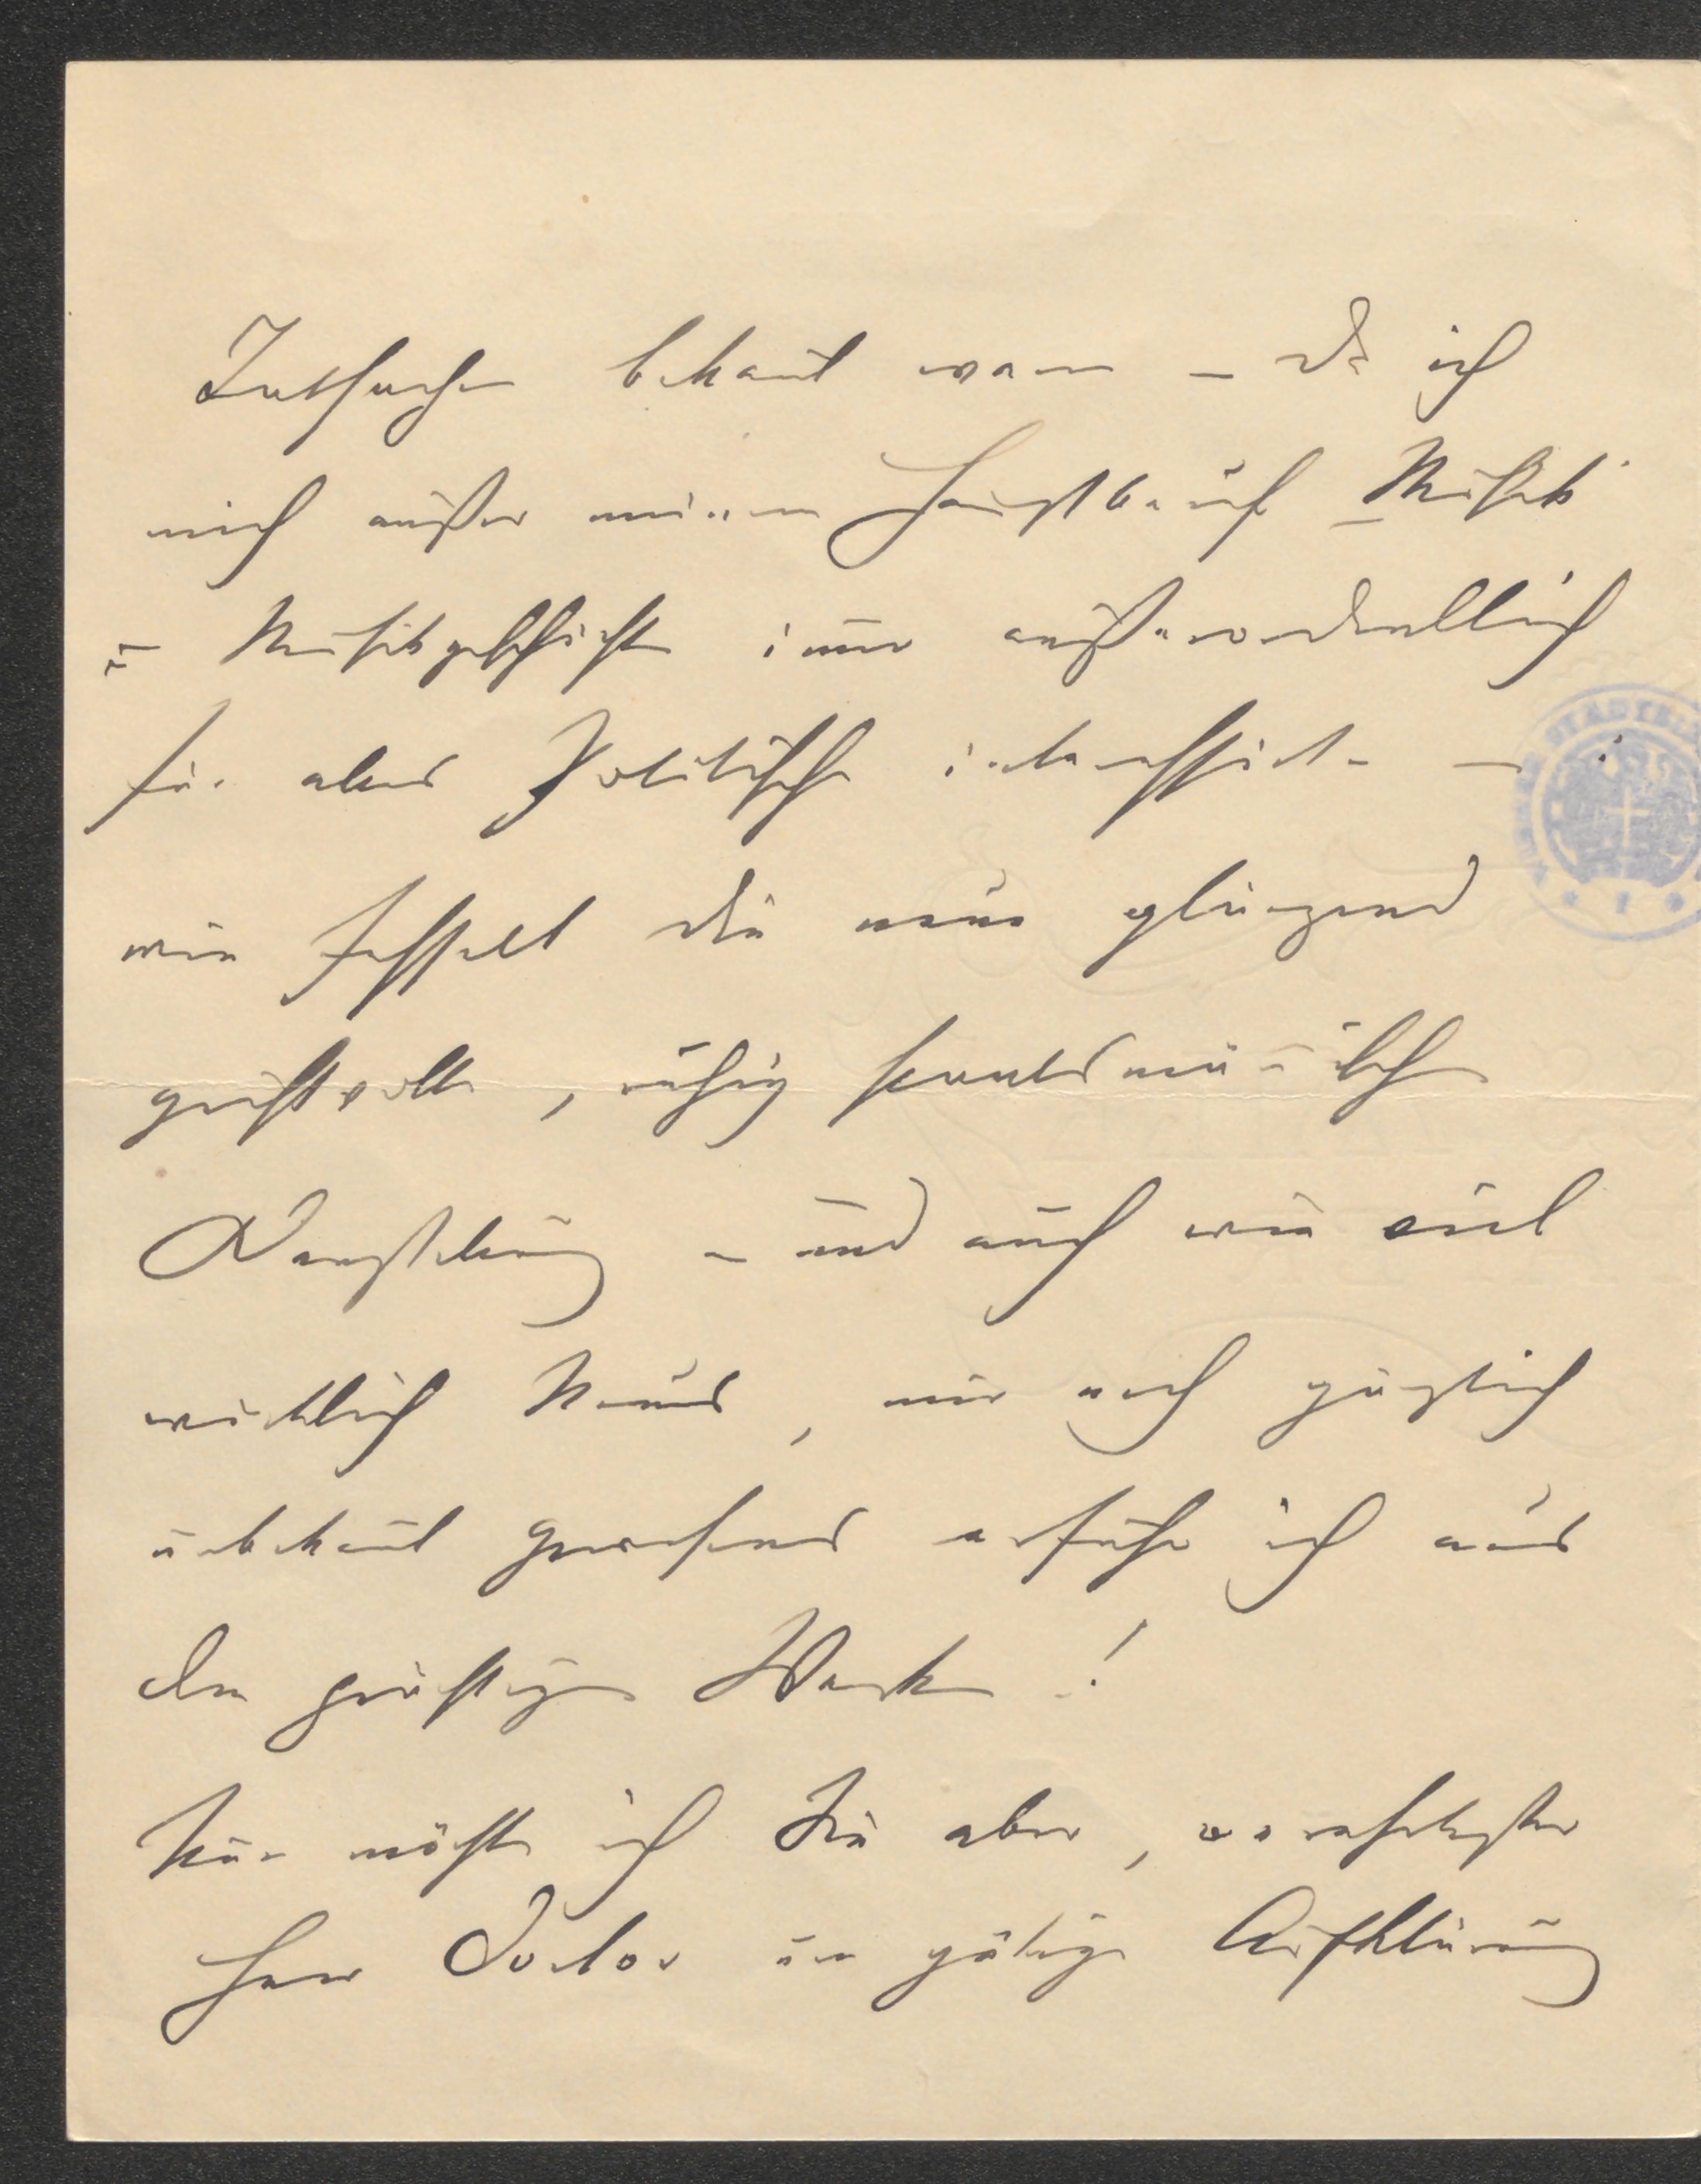 Tatsachen bekañt waren – da ich
mich außer meinem Hauptberuf Musik
u Musikgeschichte im̄er außerordentlich
für alles Politische interessierte –
wie fesselt die neue glänzend
geistvolle, ruhig staatsmännische
Darstellung – und auch wie viel
wirklich Neues, mir noch gänzlich
unbekañt gewesenes erfuhr ich aus
dem geistigen Werke!
Nun möchte ich Sie aber, verehrtester
Herr Doctor um gütige Aufklärung